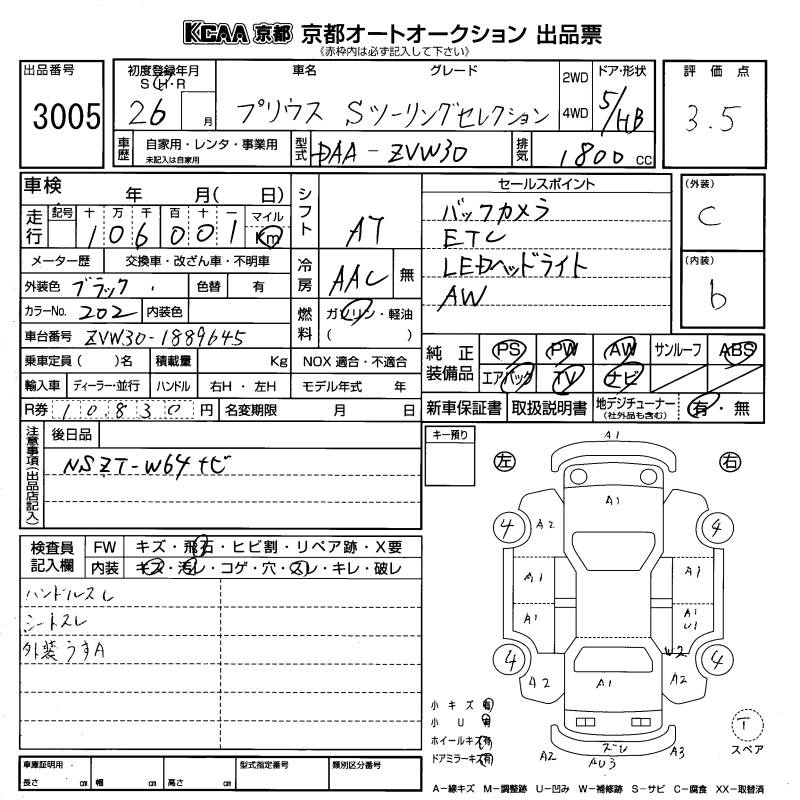 KCAA 京都 京都オートオークション 出品票
《赤枠内は必ず記入して下さい》
出品番号
3005
初度登録年月
S・H・R
26 月
車名 グレード
プリウス Sツーリングセレクション
2WD
4WD
ドア・形状
5/HB
評価点
3.5
車歴
自家用・レンタ・事業用
未記入は自家用
型式
DAA-ZVW30
排気
1800 cc
車検 年 月( 日)
走行
記号 十 万 千 百 十 一 マイル
106001 Km
メーター歴 交換車・改ざん車・不明車
外装色 ブラック 色替 有
カラーNo. 202 内装色
車台番号 ZVW30-1889645
乗車定員( )名 積載量 Kg NOX 適合・不適合
輸入車 ディーラー・並行 ハンドル 右H・左H モデル年式 年
R券 10830 円 名変期限 月 日
シフト
AT
冷房
AAC 無
燃料
ガソリン・軽油
( )
セールスポイント
バックカメラ
ETC
LEDヘッドライト
AW
(外装)
C
(内装)
b
純正装備品
PS PW AW サンルーフ ABS
エアバック TV ナビ
新車保証書 取扱説明書 地デジチューナー
(社外品も含む)
有・無
注意事項(出品店記入)
後日品
NSZT-W64ナビ
キー預り
検査員記入欄
FW キズ・飛石・ヒビ割・リペア跡・X要
内装 キズ・汚レ・コゲ・穴・スレ・キレ・破レ
ハンドルスレ
シートスレ
外装うすA
左 右
A1
A1
4 A2 4
A1 A1
A1 A1
U1
W2
4 A2 A1 A2 4
小キズ 有
小U 有
ホイールキズ 有
ドアミラーキズ 有
A2 AU3 A3
T
スペア
車庫証明用
長さ cm 幅 cm 高さ cm
型式指定番号
類別区分番号
A-線キズ M-調整跡 U-凹み W-補修跡 S-サビ C-腐食 XX-取替済